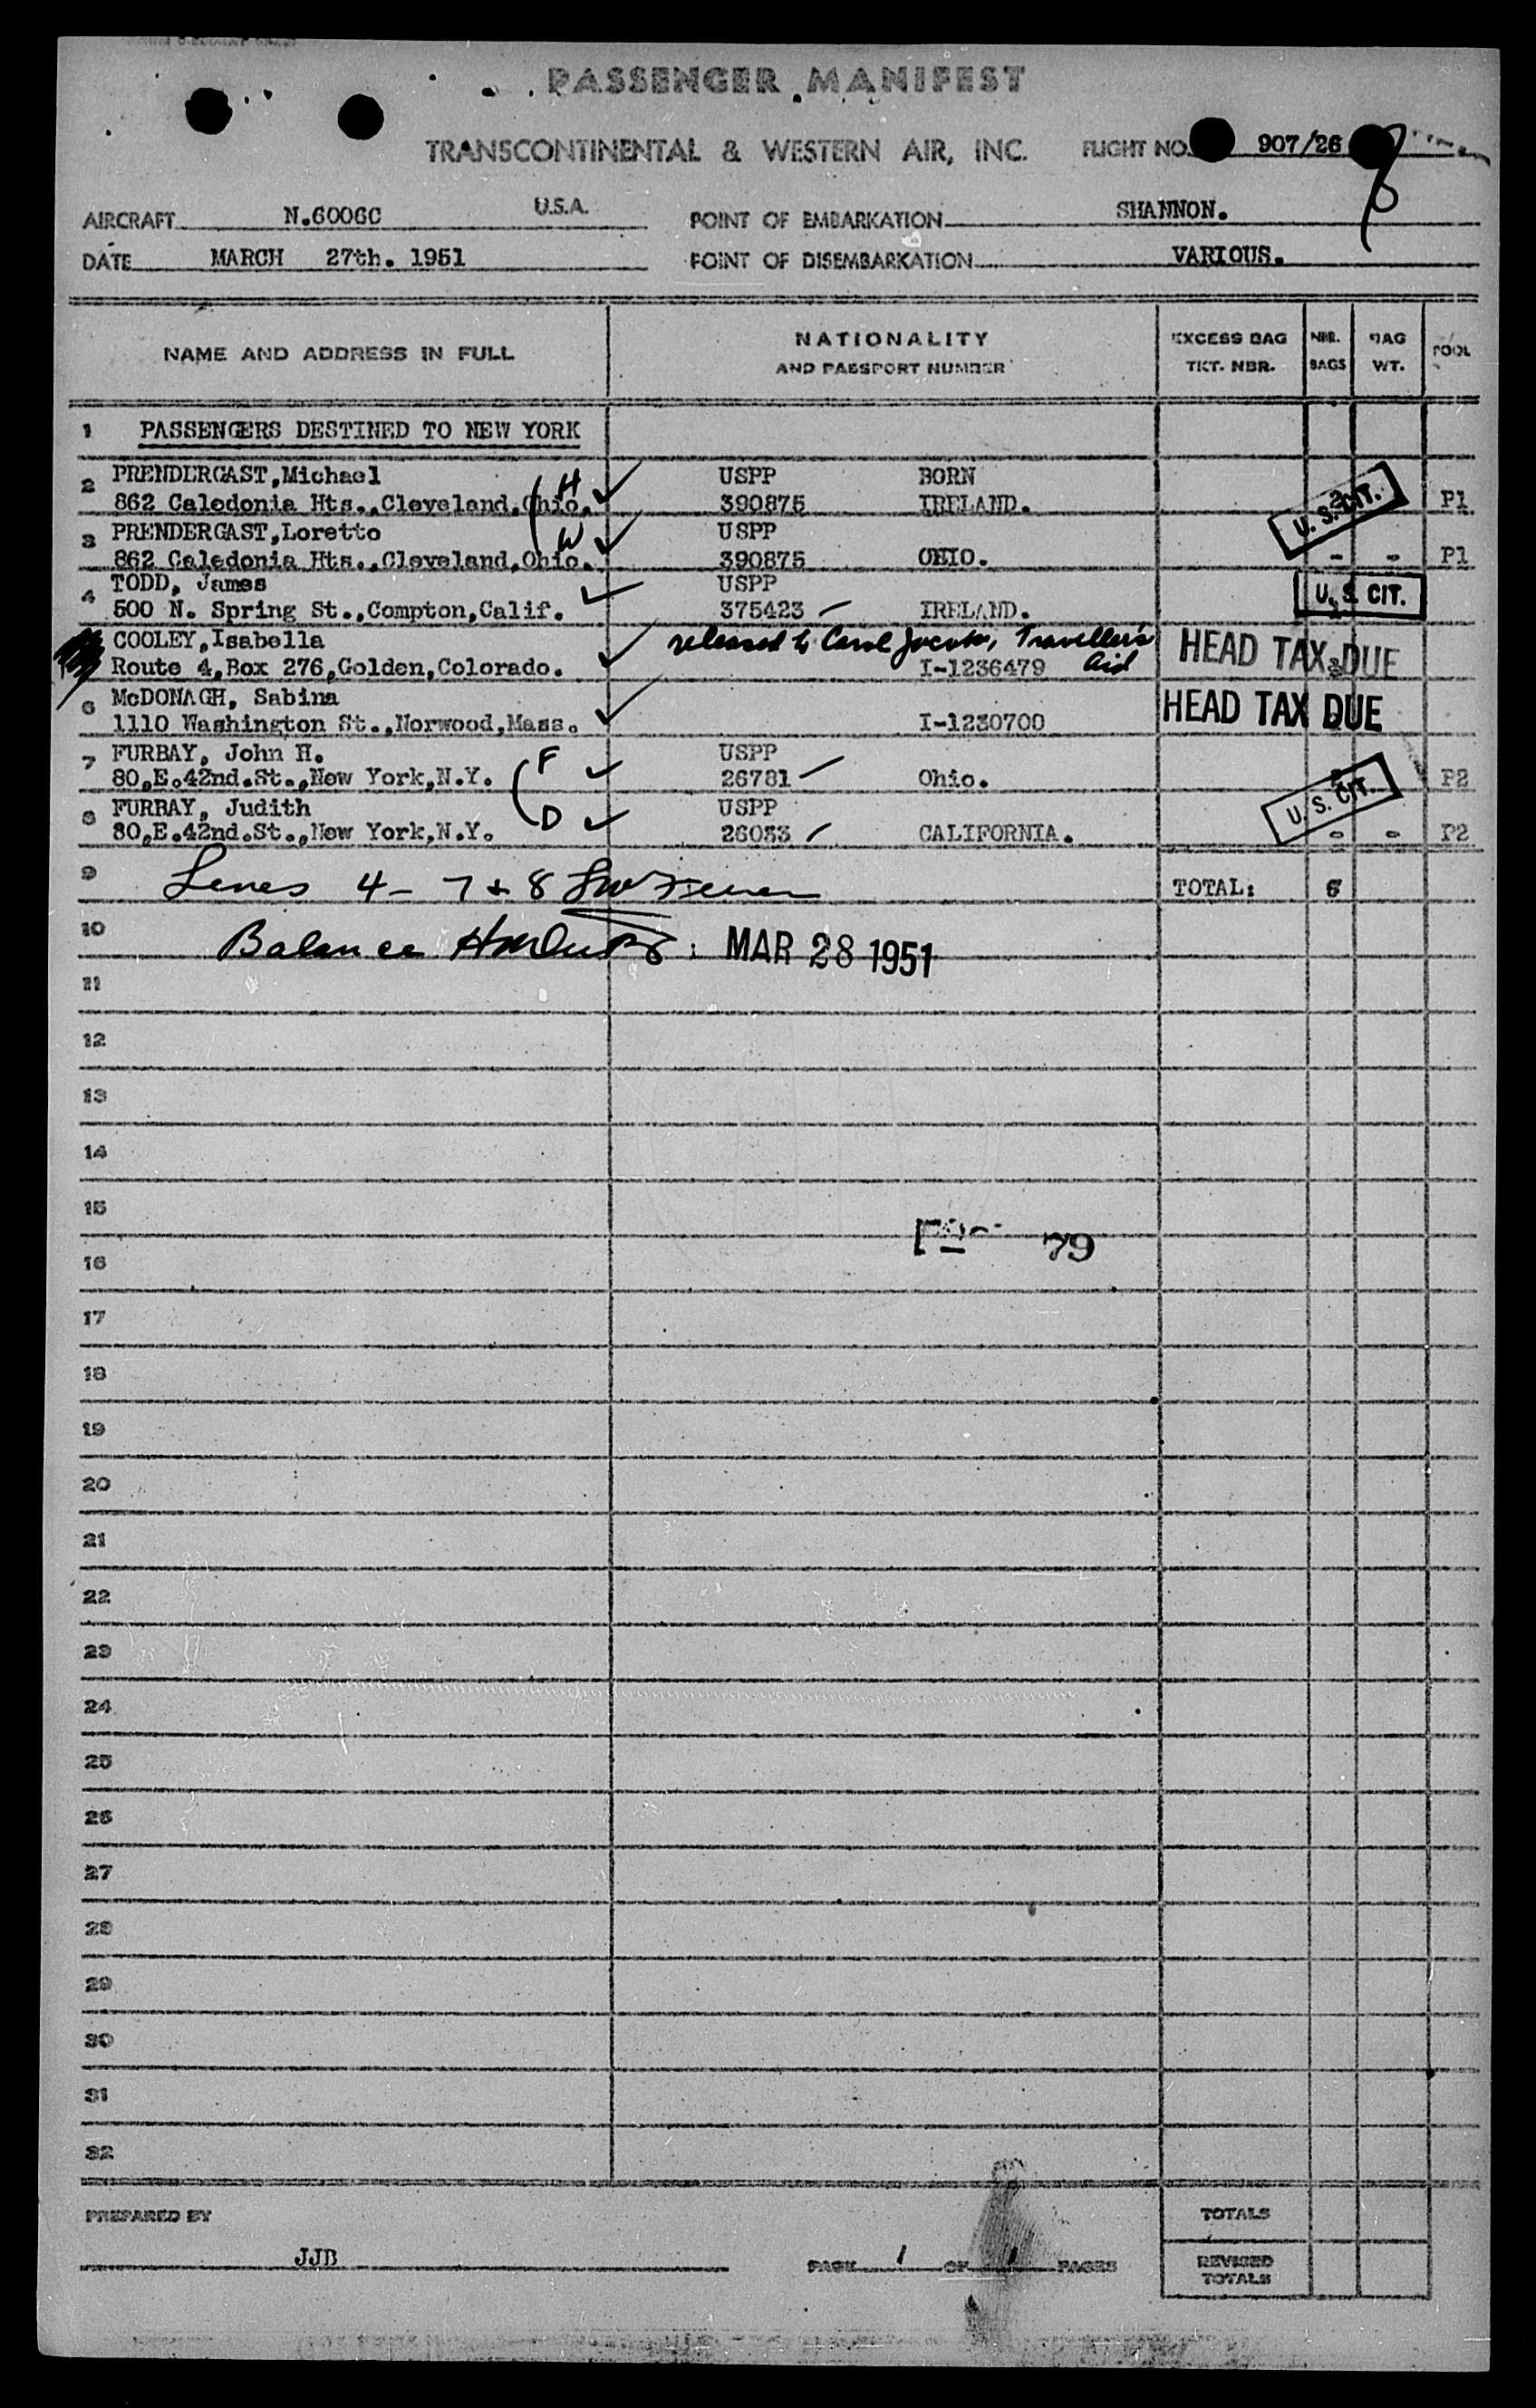 PASSENGER MANIFEST
TRANSCONTINENTAL & WESTERN AIR, INC. FLIGHT NO. 907/26
AIRCRAFT N.6006C U.S.A. POINT OF EMBARKATION SHANNON.
DATE MARCH 27th. 1951 POINT OF DISEMBARKATION VARIOUS.
NAME AND ADDRESS IN FULL NATIONALITY AND PASSPORT NUMBER EXCESS BAG TKT. NBR. NBR. BAGS BAG WT. POOL
1 PASSENGERS DESTINED TO NEW YORK
2 PRENDERGAST,Michael H USPP BORN
862 Caledonia Hts.,Cleveland,Ohio. 390875 IRELAND. U. S. CIT. P1
3 PRENDERGAST,Loretto W USPP
862 Caledonia Hts.,Cleveland,Ohio. 390875 OHIO. - - P1
4 TODD, James USPP
500 N. Spring St.,Compton,Calif. 375423 IRELAND. U.S. CIT.
COOLEY,Isabella released to Carol Travellers Aid
Route 4,Box 276,Golden,Colorado. I-1236479 HEAD TAX DUE
6 McDONAGH, Sabina
1110 Washington St.,Norwood,Mass. I-1230700 HEAD TAX DUE
7 FURBAY, John H. F USPP
80,E.42nd.St.,New York,N.Y. 26781 Ohio. P2
8 FURBAY, Judith D USPP U. S. CIT.
80,E.42nd.St.,New York,N.Y. 26033 CALIFORNIA. - - P2
9 Lines 4 - 7 + 8 TOTAL: 6
10 Balance MAR 28 1951
11
12
13
14
15
79
16
17
18
19
20
21
22
23
24
25
26
27
28
29
30
31
32
PREPARED BY TOTALS
JJB PAGE 1 OF 1 PAGES REVISED TOTALS